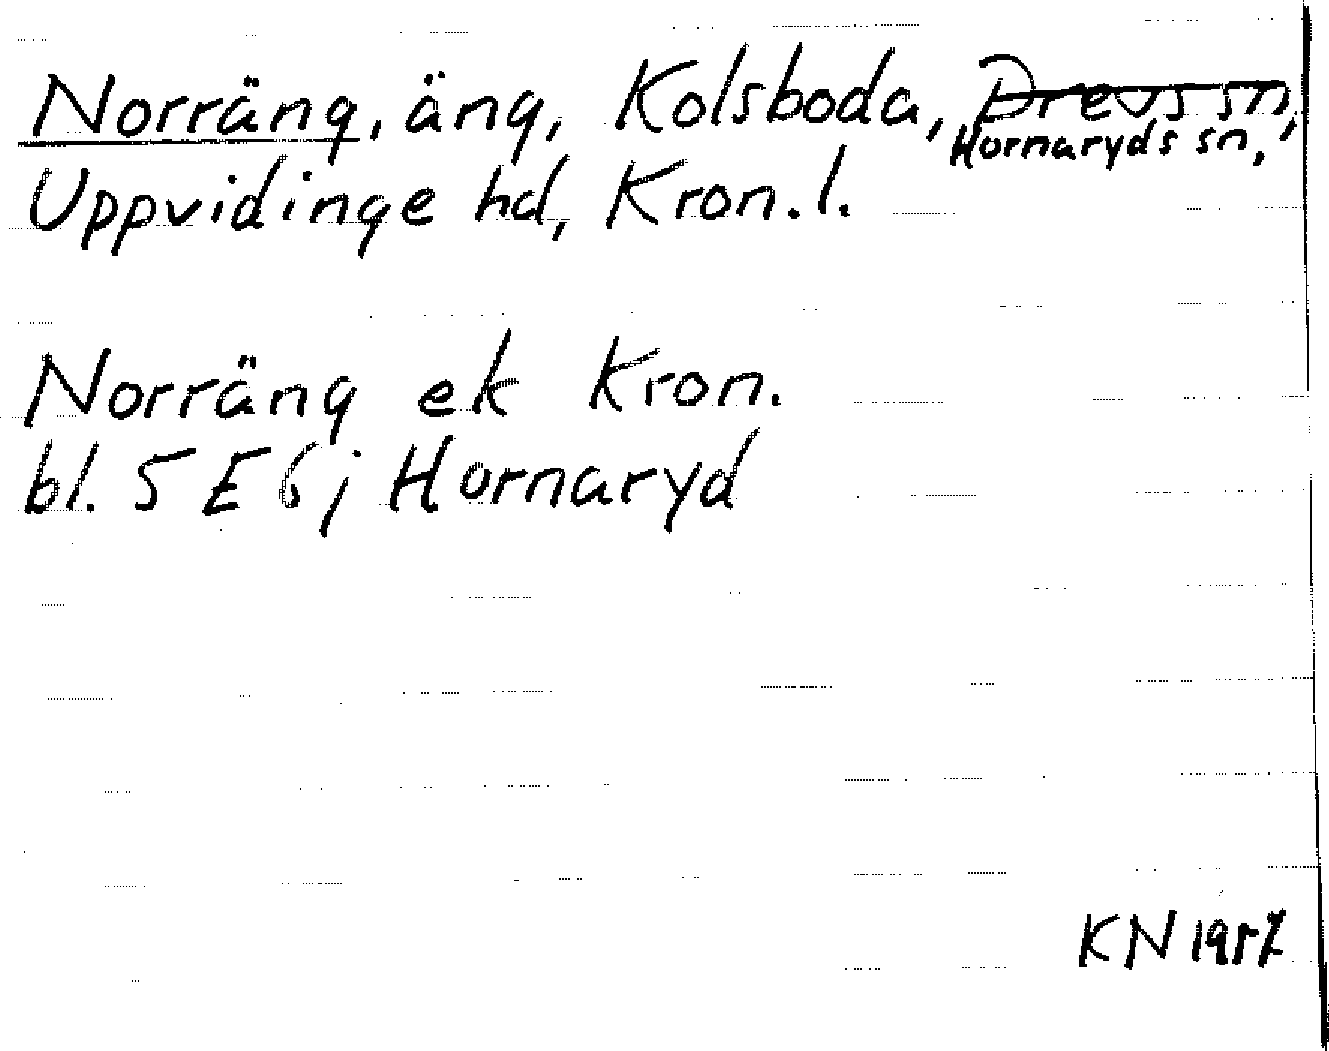 Norräng, äng, Kolsboda, Drevs sn,
Hornaryds sn,
Uppvidinge hd, Kron. l.
Norräng ek Kron.
bl. 5 E 6 j Hornaryd
KN 1957